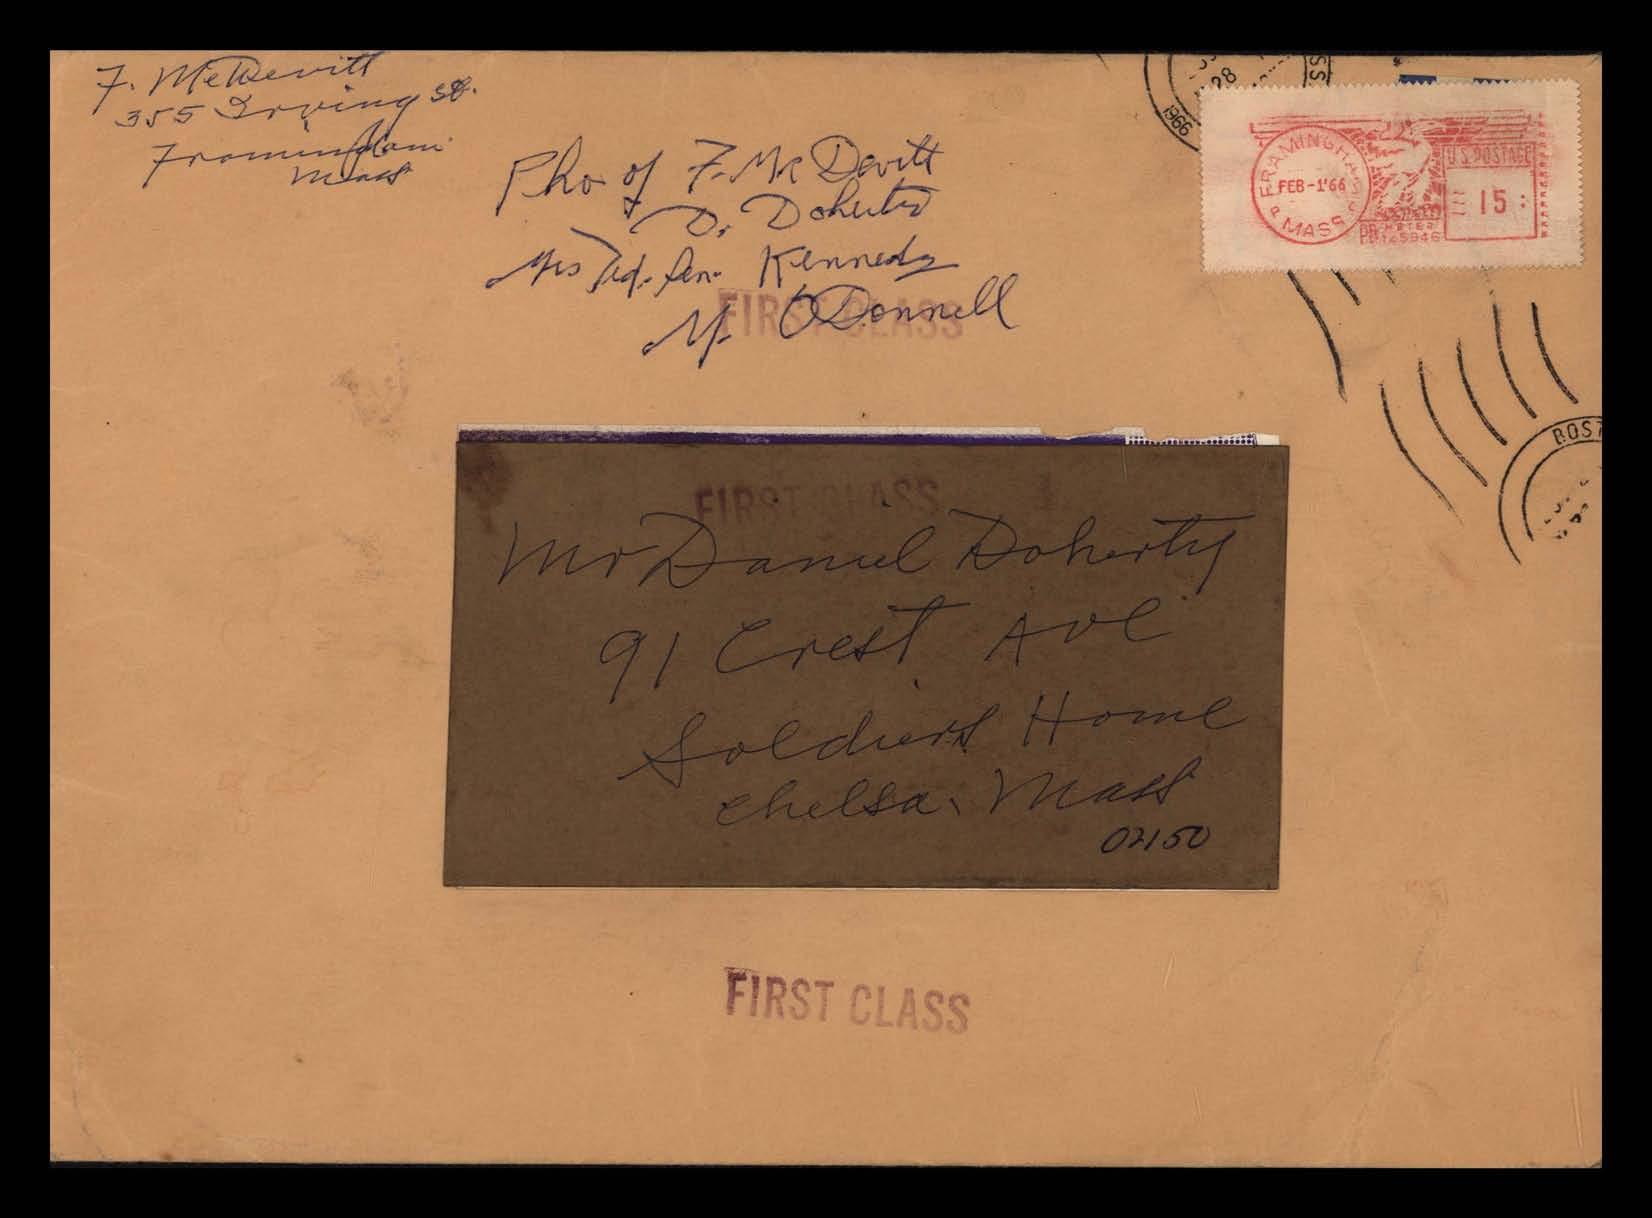 F. McDevitt
355 Irving St.
Framingham
Mass
Pho of F. McDevitt
D. Doherty
Mrs Ted. Sen. Kennedy
M. O'Donnell
FIRST CLASS
28
1966
FRAMINGHAM
FEB -1'66
MASS
U.S. POSTAGE
15
PB METER
145946
BOST
FIRST CLASS
Mr Daniel Doherty
91 Crest Ave
Soldiers Home
Chelsa, Mass
02150
FIRST CLASS